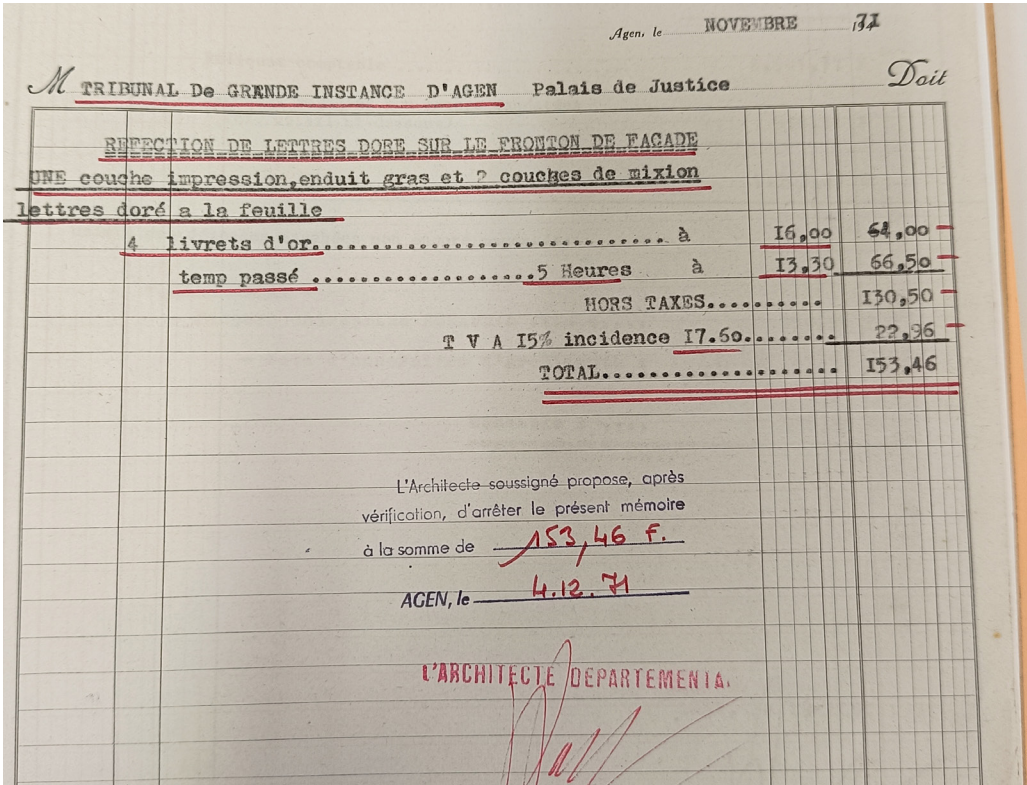 Agen, le NOVEMBRE 71
M TRIBUNAL De GRANDE INSTANCE D'AGEN Palais de Justice Doit
REFECTION DE LETTRES DORE SUR LE FRONTON DE FACADE
UNE couche impression,enduit gras et 2 couches de mixion
lettres doré a la feuille
4 livrets d'or.................................. à I6,00 64,00
temp passé ....................5 Heures à I3,30 66,50
HORS TAXES.......... I30,50
T V A I5% incidence I7.60......... 22,96
TOTAL..................... I53,46
L'Architecte soussigné propose, après
vérification, d'arrêter le présent mémoire
à la somme de 153,46 F.
AGEN, le 4.12.71
L'ARCHITECTE DEPARTEMENTA